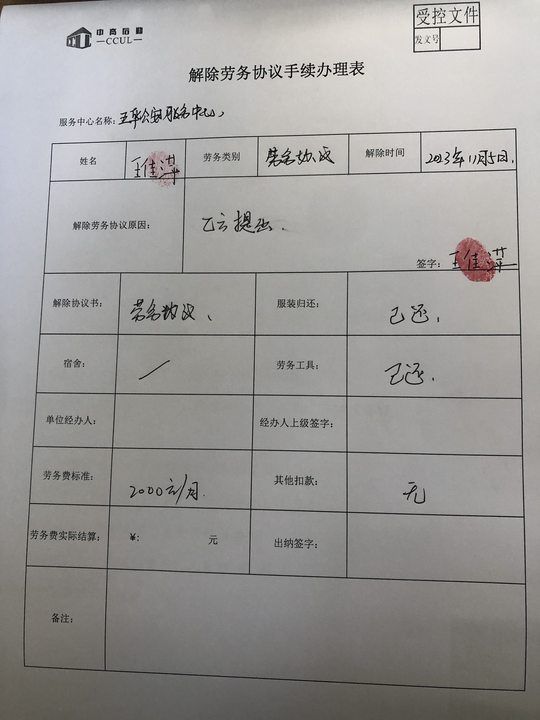 中商后勤
—CCUL—
受控文件
发文号
解除劳务协议手续办理表
服务中心名称:
姓名 王佳萍 劳务类别 劳务协议 解除时间 2023年11月5日.
解除劳务协议原因: 乙方提出.
签字: 王佳萍
解除协议书: 劳务协议、 服装归还: 已还,
宿舍: / 劳务工具: 已还,
单位经办人: 经办人上级签字:
劳务费标准: 2000元/月. 其他扣款: 无
劳务费实际结算: ¥: 元 出纳签字:
备注: